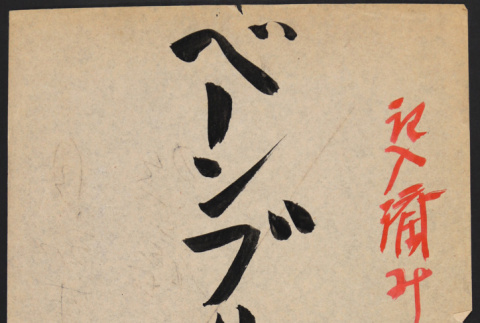 記入済み
ベーンブ